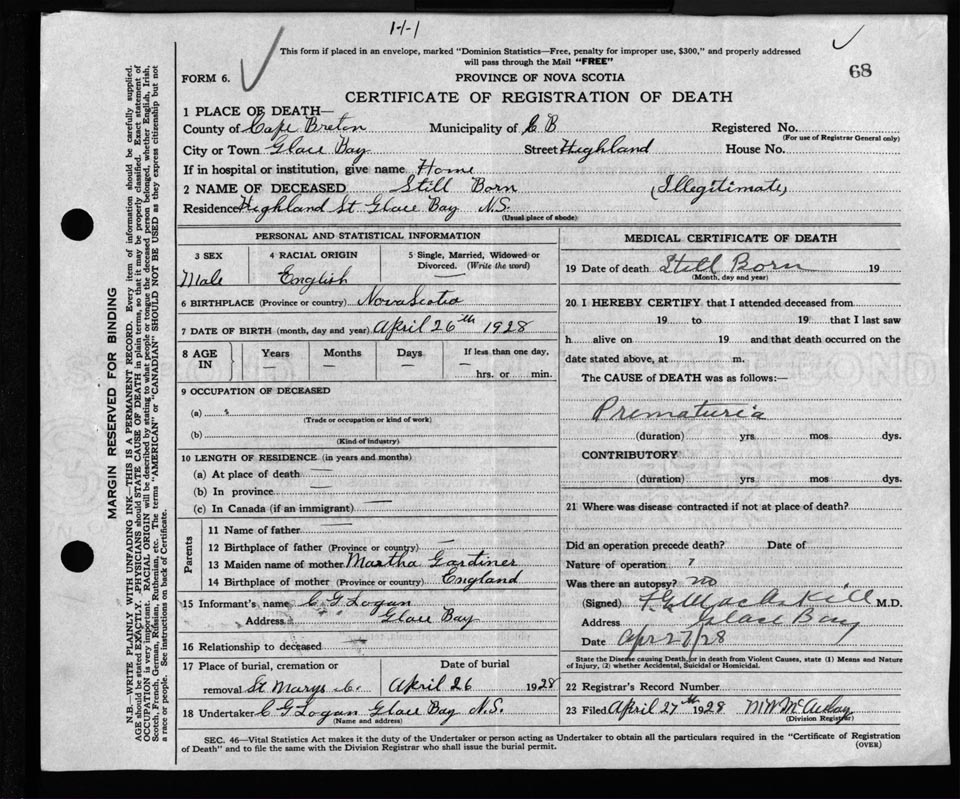 1-1-1
This form if placed in an envelope, marked "Dominion Statistics—Free, penalty for improper use, $300," and properly addressed
will pass through the Mail "FREE"
68
FORM 6.
PROVINCE OF NOVA SCOTIA
CERTIFICATE OF REGISTRATION OF DEATH
1 PLACE OF DEATH—
County of Cape Breton Municipality of C B Registered No.
(For use of Registrar General only)
City or Town Glace Bay Street Highland House No.
If in hospital or institution, give name Home
2 NAME OF DECEASED Still Born (Illegitimate)
Residence Highland St Glace Bay N.S.
(Usual place of abode)
PERSONAL AND STATISTICAL INFORMATION
3 SEX 4 RACIAL ORIGIN 5 Single, Married, Widowed or
Divorced. (Write the word)
Male English —
6 BIRTHPLACE (Province or country) Nova Scotia
7 DATE OF BIRTH (month, day and year) April 26th 1928
8 AGE IN Years Months Days If less than one day,
— — — hrs. or min.
9 OCCUPATION OF DECEASED
(a)
(Trade or occupation or kind of work)
(b)
(Kind of industry)
10 LENGTH OF RESIDENCE (in years and months)
(a) At place of death —
(b) In province —
(c) In Canada (if an immigrant) —
Parents
11 Name of father —
12 Birthplace of father (Province or country) —
13 Maiden name of mother Martha Gardiner
14 Birthplace of mother (Province or country) England
15 Informant's name C G Logan
Address Glace Bay
16 Relationship to deceased
17 Place of burial, cremation or Date of burial
removal St Marys C. April 26 1928
18 Undertaker C G Logan Glace Bay N.S.
(Name and address)
MEDICAL CERTIFICATE OF DEATH
19 Date of death Still Born 19
(Month, day and year)
20 I HEREBY CERTIFY that I attended deceased from
19 to 19 that I last saw
h alive on 19 and that death occurred on the
date stated above, at m.
The CAUSE of DEATH was as follows:—
Prematuria
(duration) yrs mos dys.
CONTRIBUTORY
(duration) yrs mos dys.
21 Where was disease contracted if not at place of death?
Did an operation precede death? Date of
Nature of operation ?
Was there an autopsy? no
(Signed) MacAskill M.D.
Address Glace Bay
Date Apr 27/28
State the Disease causing Death, or in death from Violent Causes, state (1) Means and Nature
of Injury, (2) whether Accidental, Suicidal or Homicidal.
22 Registrar's Record Number
23 Filed April 27th 1928 McAulay
(Division Registrar)
SEC. 46—Vital Statistics Act makes it the duty of the Undertaker or person acting as Undertaker to obtain all the particulars required in the "Certificate of Registration
of Death" and to file the same with the Division Registrar who shall issue the burial permit.
(OVER)
MARGIN RESERVED FOR BINDING
N.B.—WRITE PLAINLY WITH UNFADING INK—THIS IS A PERMANENT RECORD. Every item of information should be carefully supplied.
AGE should be stated EXACTLY. PHYSICIANS should STATE CAUSE OF DEATH in plain terms, so that it may be properly classified. Exact statement of
OCCUPATION is very important. RACIAL ORIGIN will be described by stating to what people or tongue the deceased person belonged, whether English, Irish,
Scotch, French, German, Russian, Ruthenian, etc. The terms "AMERICAN" or "CANADIAN" SHOULD NOT BE USED as they express citizenship but not
a race or people. See instructions on back of Certificate.